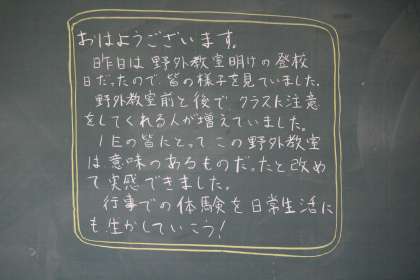 おはようございます。
昨日は野外教室明けの登校
日だったので皆の様子を見ていました。
野外教室前と後でクラスに注意
をしてくれる人が増えていました。
1Eの皆にとってこの野外教室
は意味のあるものだったと改め
て実感できました。
行事での体験を日常生活に
も生かしていこう!